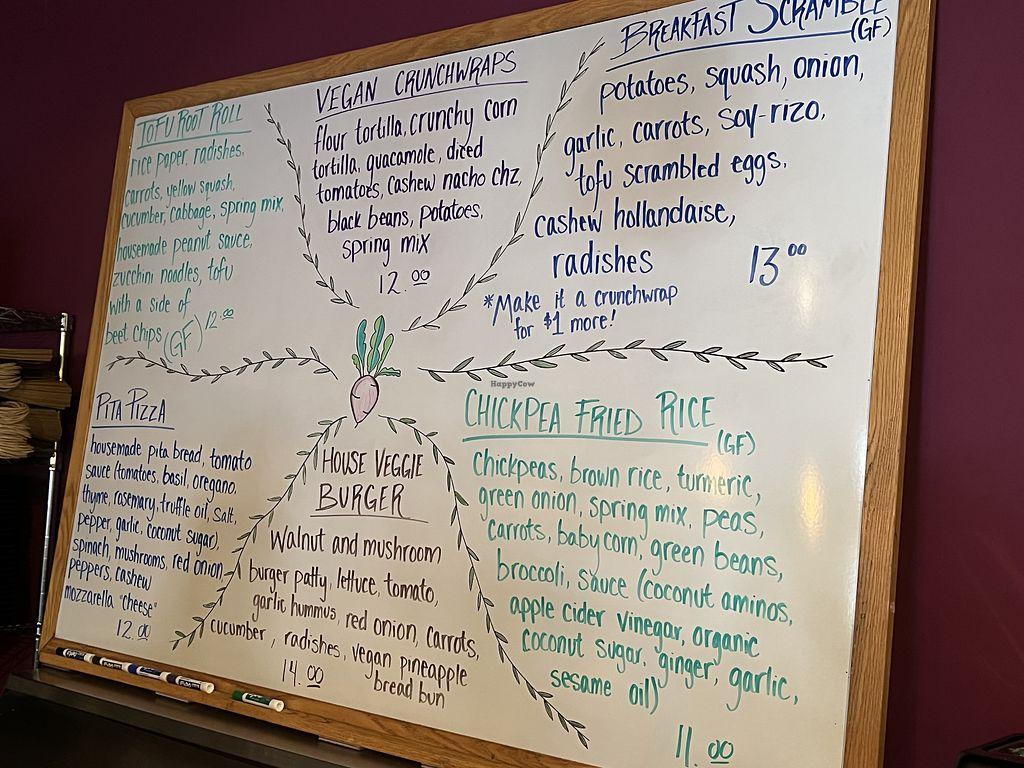 TOFU ROOT ROLL
rice paper, radishes,
carrots, yellow squash,
cucumber, cabbage, spring mix,
housemade peanut sauce,
zucchini noodles, tofu
with a side of
beet chips (GF) 12.00
VEGAN CRUNCHWRAPS
flour tortilla, crunchy corn
tortilla, guacamole, diced
tomatoes, cashew nacho chz,
black beans, potatoes,
spring mix
12.00
BREAKFAST SCRAMBLE
(GF)
potatoes, squash, onion,
garlic, carrots, soy-rizo,
tofu scrambled eggs,
cashew hollandaise,
radishes
13.00
*Make it a crunchwrap
for $1 more!
HappyCow
PITA PIZZA
housemade pita bread, tomato
sauce (tomatoes, basil, oregano,
thyme, rosemary, truffle oil, salt,
pepper, garlic, coconut sugar),
spinach, mushrooms, red onion,
peppers, cashew
mozzarella "cheese"
12.00
HOUSE VEGGIE
BURGER
Walnut and mushroom
burger patty, lettuce, tomato,
garlic hummus, red onion, carrots,
cucumber, radishes, vegan pineapple
bread bun
14.00
CHICKPEA FRIED RICE
(GF)
Chickpeas, brown rice, turmeric,
green onion, spring mix, peas,
carrots, baby corn, green beans,
broccoli, sauce (coconut aminos,
apple cider vinegar, organic
coconut sugar, ginger, garlic,
sesame oil)
11.00